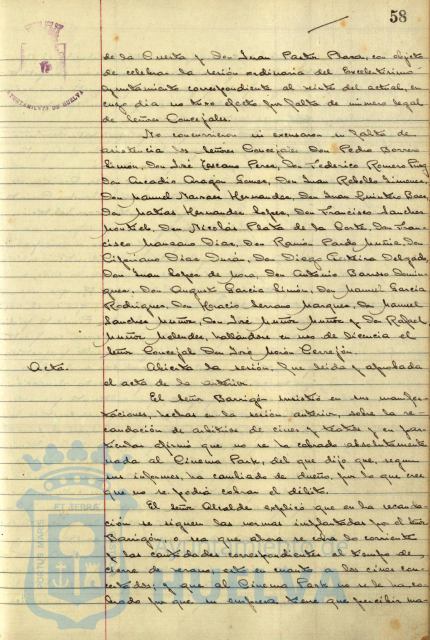 58
AYUNTAMIENTO DE HUELVA
de la Cuerta y Don Juan Pastor Bara, con objeto
de celebrar la sesión ordinaria del Excelentísimo
Ayuntamiento correspondiente al siete del actual, en
cuyo día no tuvo efecto por falta de número legal
de Señores Concejales.
No concurrieron ni excusaron su falta de
asistencia los Señores Concejales Don Pedro Borrero
Limón, Don José Toscano Perez, Don Federico Romero
Don Arcadio Aragón Gomez, Don Juan Rebollo Jimenez,
Don Manuel Narvaez Hernandez, Don Juan Quintero Baez,
Don Matías Hernandez Lopez, Don Francisco Sanchez
Don Nicolás Plata de la Corte, Don Fran-
cisco Manzano Dias, Don Ramón Pardo Don
Cipriano Dias Durán, Don Diego Delgado,
Don Juan Lopez de Mora, Don Antonio Barroso Domin-
guez, Don Augusto Garcia Limón, Don Manuel Garcia
Rodriguez, Don Horacio Serrano Marquez, Don Manuel
Sanchez Muñoz, Don José Muñoz Muñoz y Don Rafael
Muñoz Melendez, hallándose en uso de licencia el
Señor Concejal Don José Morón Cerrejón.
Acta. Abierta la sesión, fue leida y aprobada
el acta de la anterior.
El Señor Barrigón insistió en sus manifes-
taciones, hechas en la sesión anterior, sobre la re-
caudación de arbitrios de cines y teatros y en par-
ticular afirmó que no se ha cobrado absolutamente
nada al Cinema Park, del que dijo que, según
sus informes, ha cambiado de dueño, por lo que cree
que no se podrá cobrar el débito.
El Señor Alcalde explicó que en la recauda-
ción se siguen las normas implantadas por el Señor
Barrigón, o sea que ahora se cobra lo corriente
y las cantidades correspondientes al tiempo de
cierre de verano, esto en cuanto a los cines con-
certados; y que al Cinema Park no se le ha co-
brado por que su empresa tiene que percibir ma-
PORTUS MARIS
ET TERRAE
HUELVA